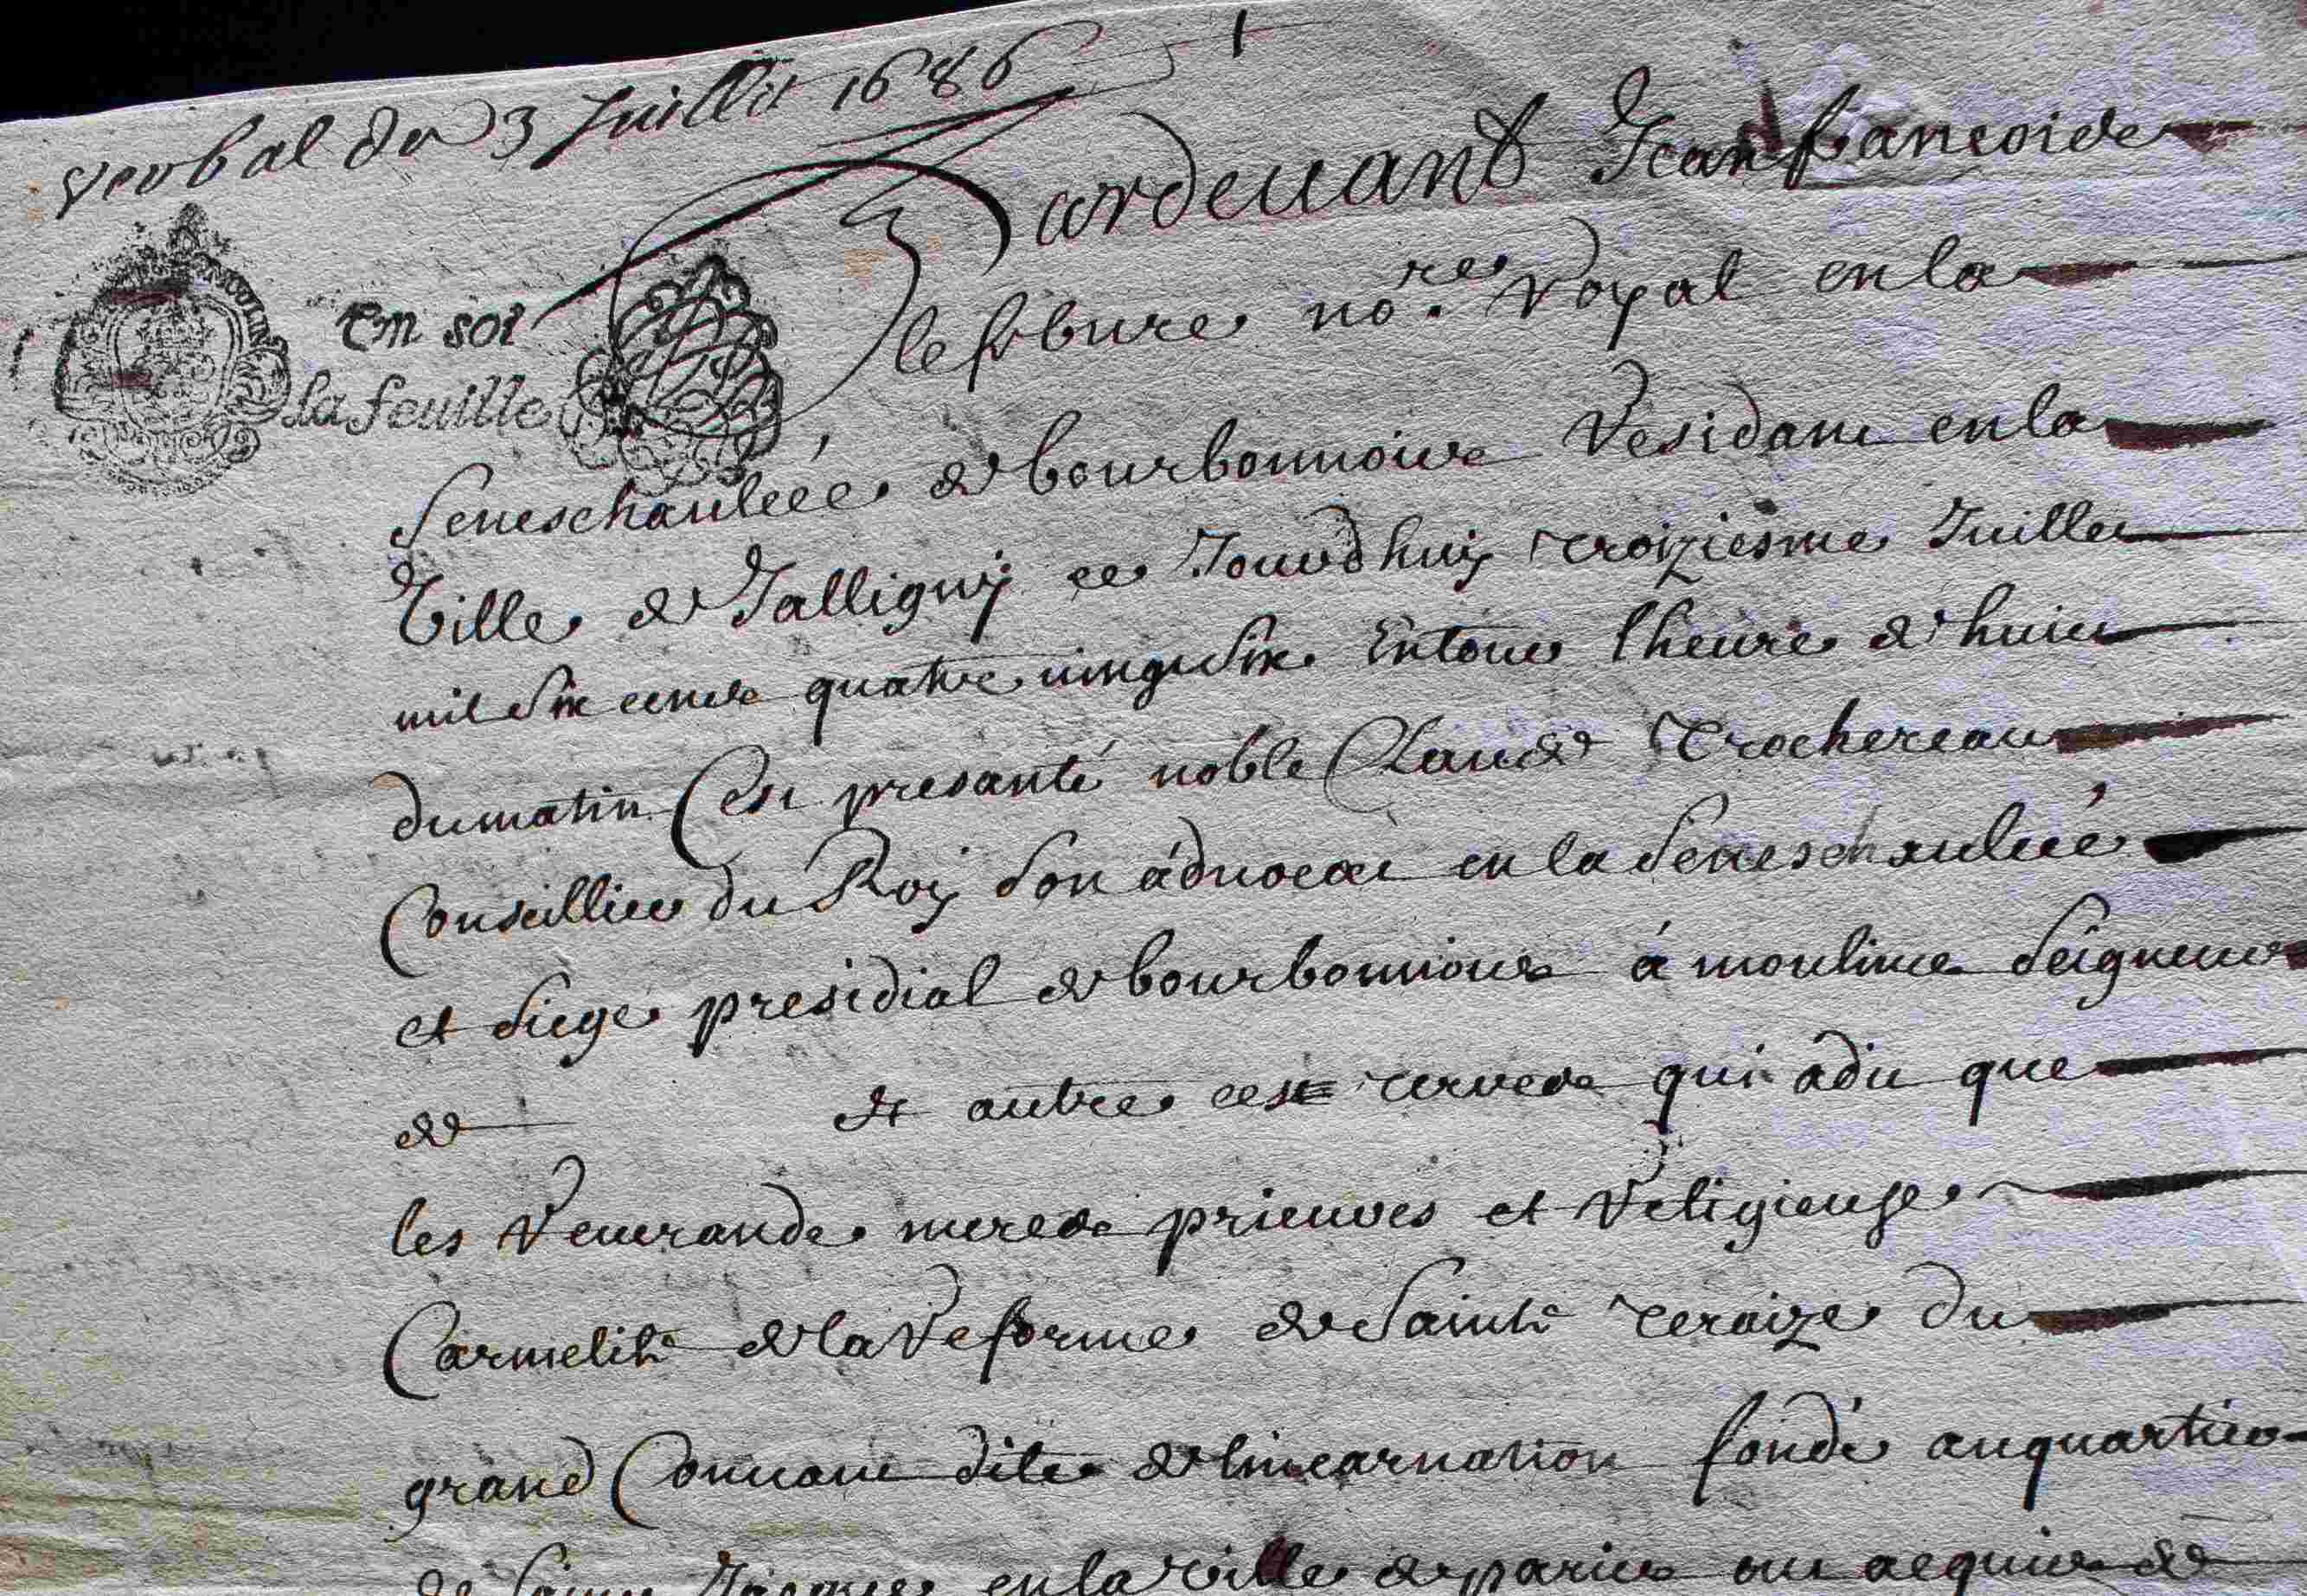 verbal du 3 Juillet 1686
Pardevant Jean francois
lefebure no.re Royal en la
Un sol
la feuille
Seneschaulcée de bourbonnois Residant en la
Ville de Jalligny ce Jourdhuy troiziesme Juillet
mil Six cents quatre vingt Six Entour lheure de huict
du matin C'est presanté noble Claude Trochereau
Conseillier du Roy Son advocat en la Seneschaulcée
et Siege presidial de bourbonnois à moulins Seigneur
de et autres ses terres qui a dit que
les Venerande meres prieures et Religieuse
Carmelite de la Reforme de Sainte teraize du
grand Convant dite de lincarnation fondé au quartier
de Sainct Jacques en la Ville de paris ont acquis de